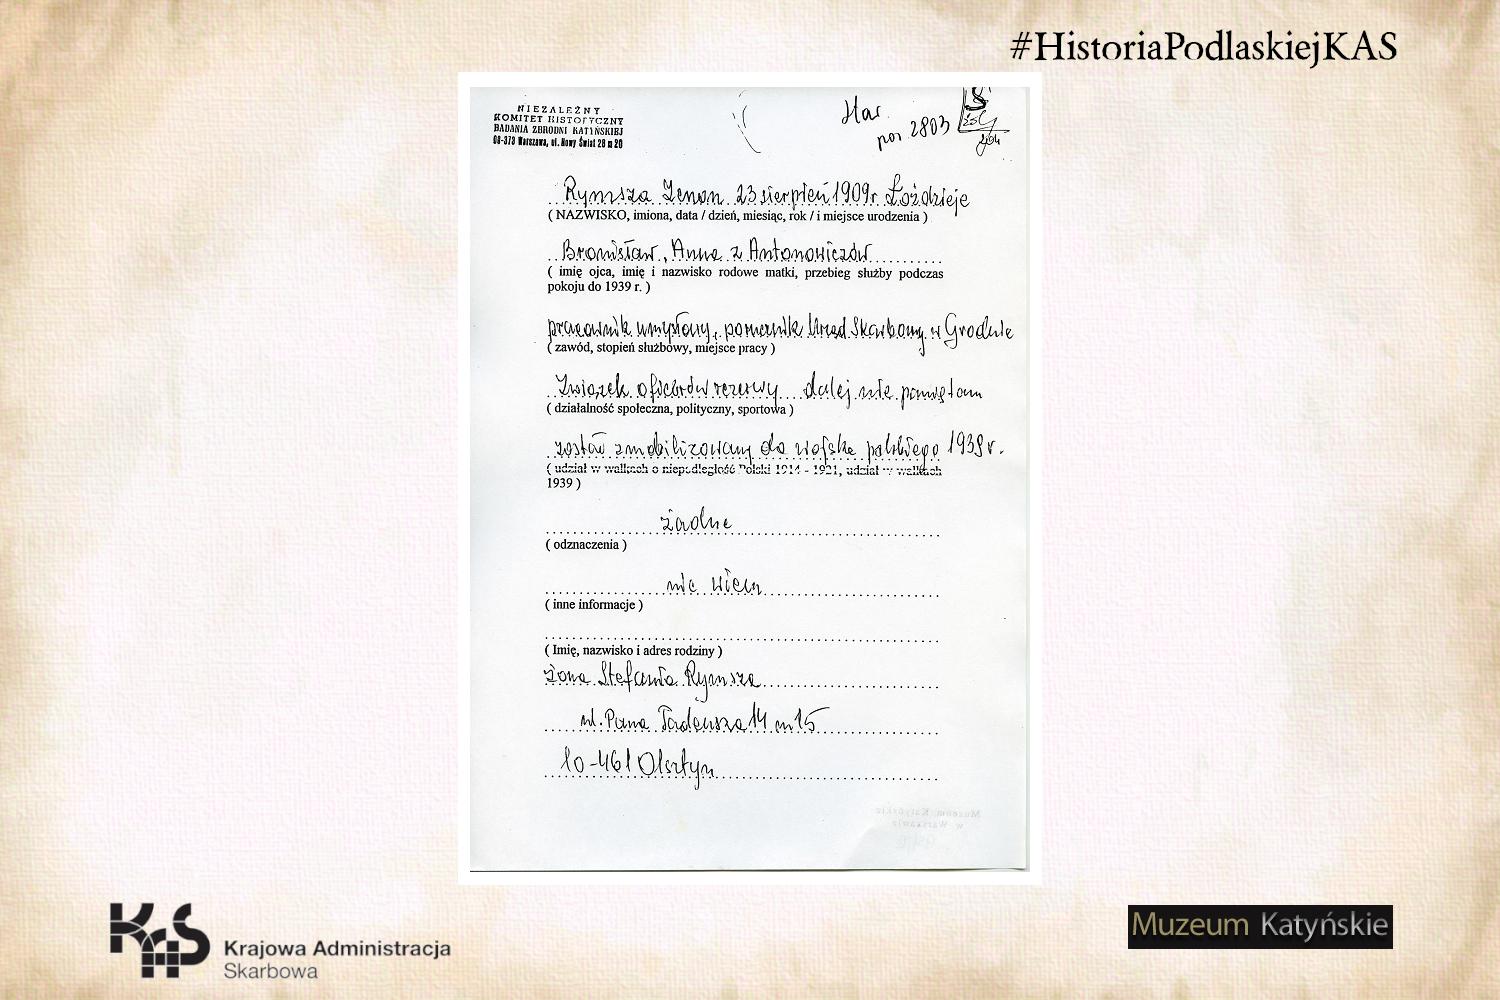 #HistoriaPodlaskiejKAS
NIEZALEŻNY
KOMITET HISTORYCZNY
BADANIA ZBRODNI KATYŃSKIEJ
00-373 Warszawa, ul. Nowy Świat 28 m 20
por. 2803
Rymsza Zenon 23 sierpień 1909r Łoździeje
( NAZWISKO, imiona, data / dzień, miesiąc, rok / i miejsce urodzenia )
Bronisław, Anna z Antonowiczów
( imię ojca, imię i nazwisko rodowe matki, przebieg służby podczas
pokoju do 1939 r. )
pracownik umysłowy, porucznik Urząd Skarbowy w Grodnie
( zawód, stopień służbowy, miejsce pracy )
Związek oficerów rezerwy dalej nie pamiętam
( działalność społeczna, polityczny, sportowa )
został zmobilizowany do wojska polskiego 1939 r.
( udział w walkach o niepodległość Polski 1914 - 1921, udział w walkach
1939 )
żadne
( odznaczenia )
nic wiem
( inne informacje )
( Imię, nazwisko i adres rodziny )
żona Stefania Rymsza
ul. Pana Tadeusza 14 m 15
10-461 Olsztyn
Muzeum Katyńskie
w Warszawie
KAS
Krajowa Administracja
Skarbowa
Muzeum Katyńskie